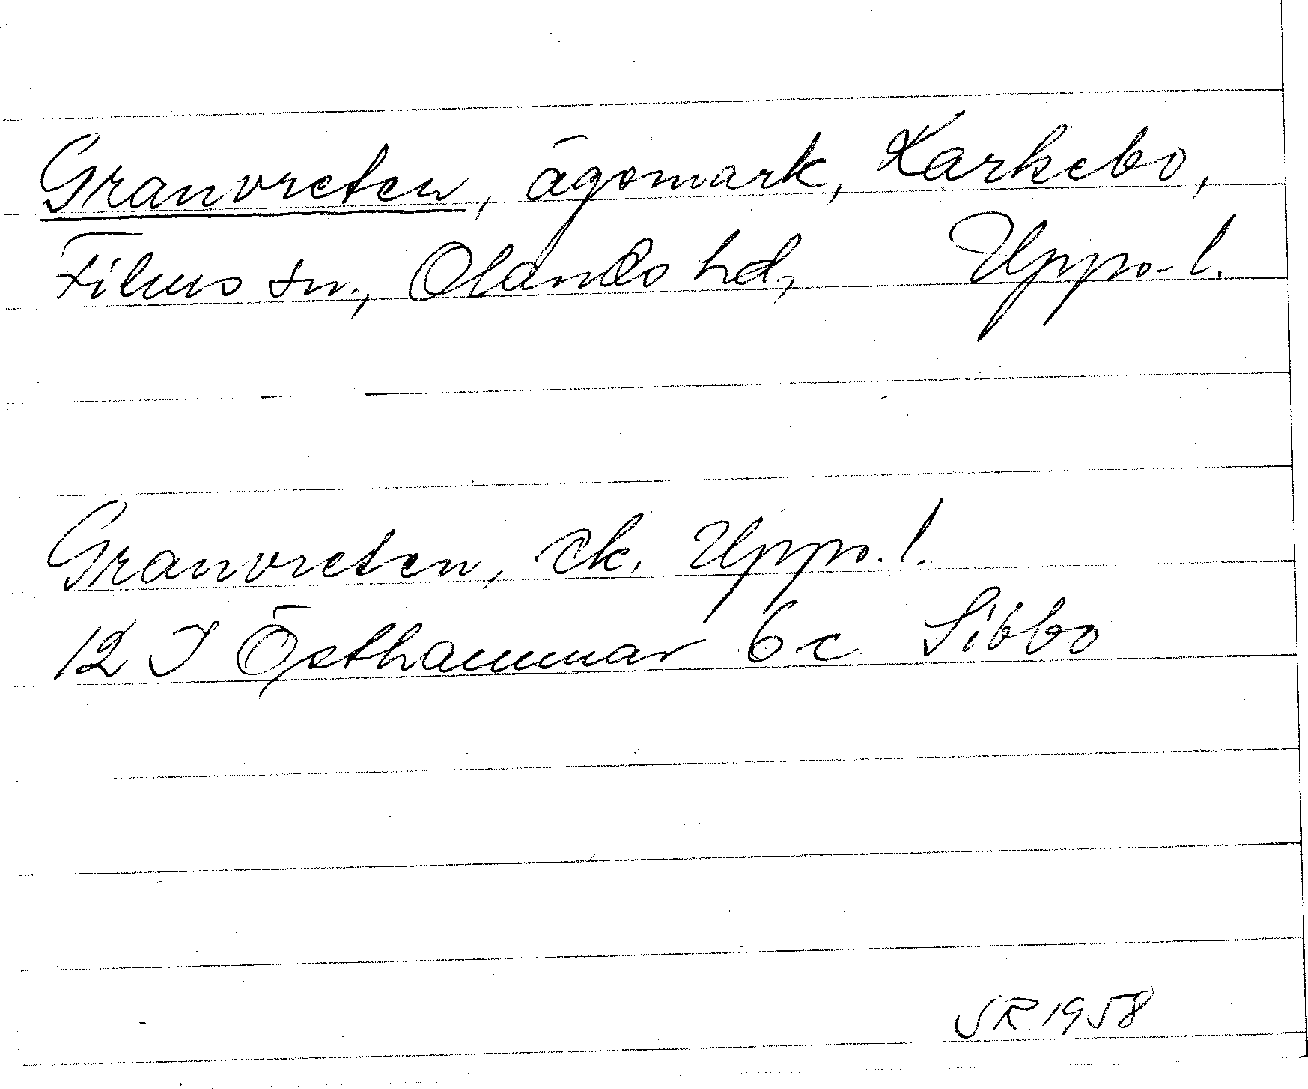 Granvreten, ägomark, Karkebo,
Films sn., Olands hd, Upps. l.
Granvreten, ek. Upps. l.
12 I Östhammar 6 c Sibbo
SR 1958